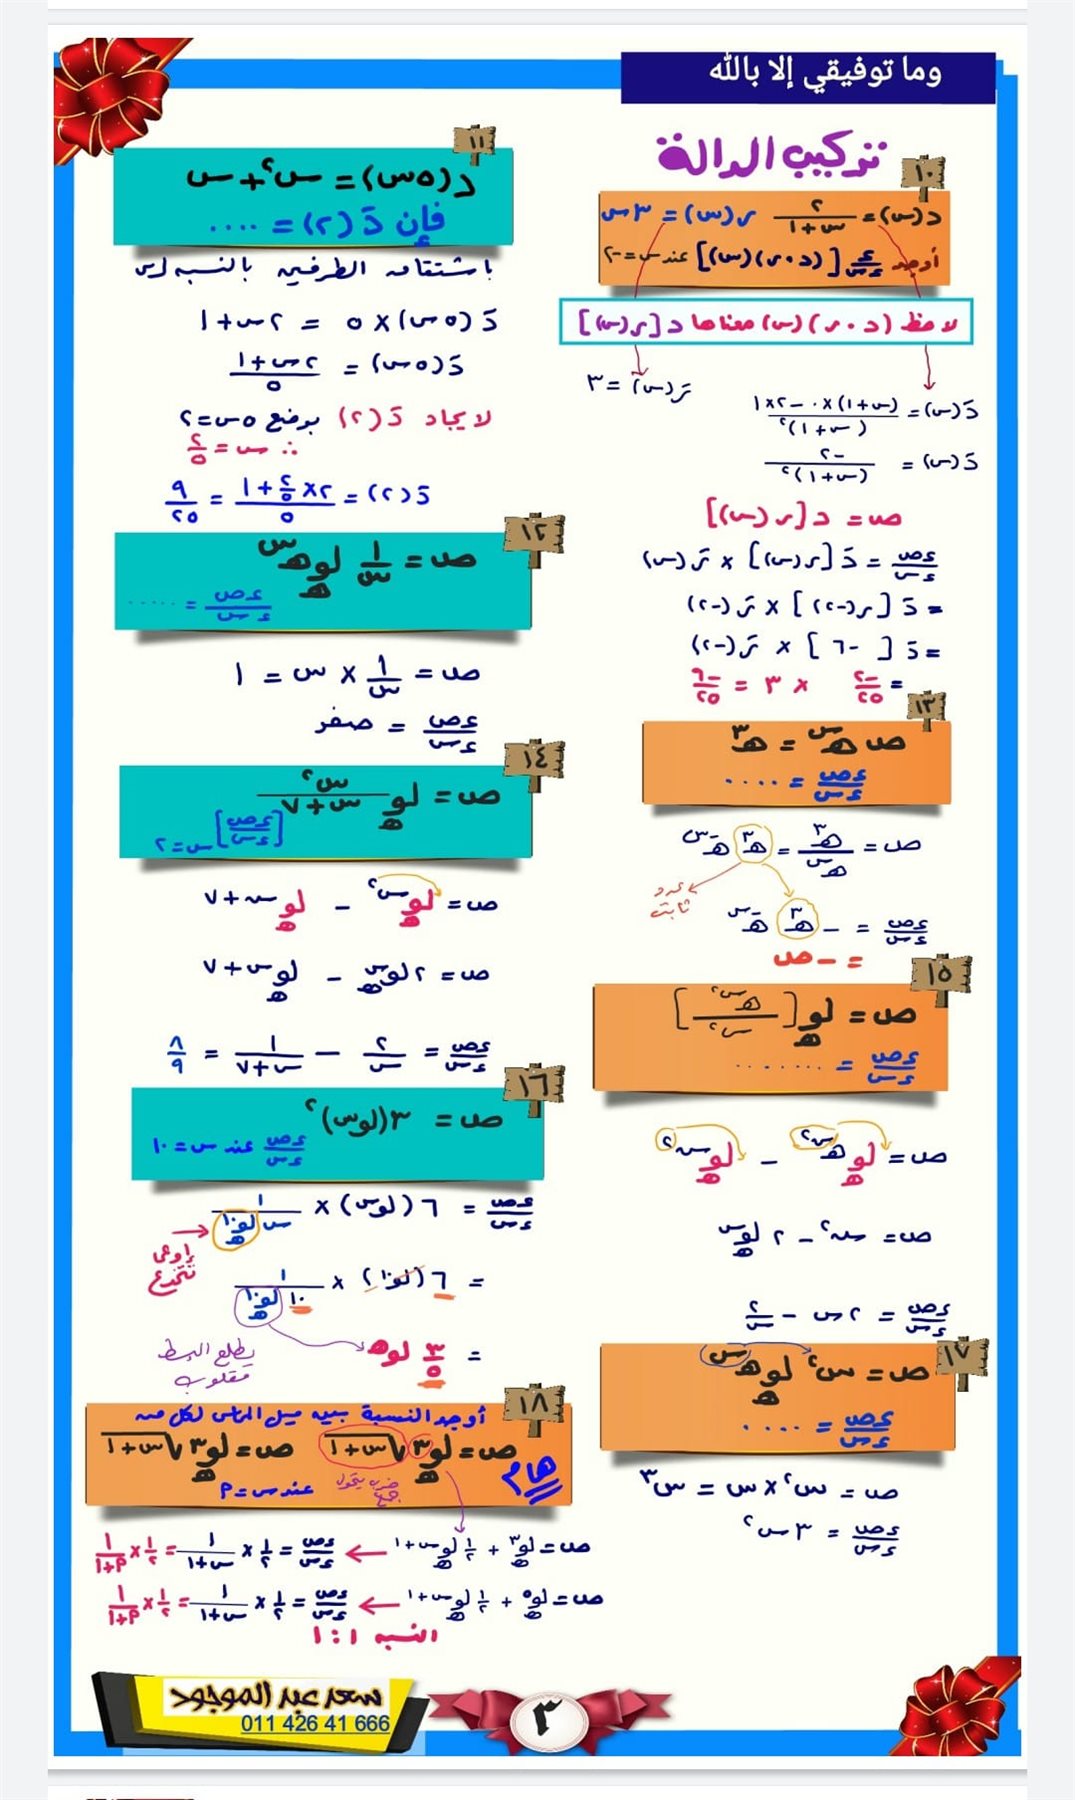 وما توفيقي إلا بالله
تركيب الدالة
١٠
د(س) = ٢/(س+١) ر(س) = ٣س
أوجد ءِ/ءس [(د∘ر)(س)] عند س=-٢
لاحظ (د∘ر)(س) معناها د[ر(س)]
رَ(س) = ٣
دَ(س) = ((س+١)×٠ - ٢×١)/(س+١)٢
دَ(س) = -٢/(س+١)٢
ص = د[ر(س)]
ءص/ءس = دَ[ر(س)] × رَ(س)
= دَ[ر(-٢)] × رَ(-٢)
= دَ[-٦] × رَ(-٢)
= -٢/٢٥ × ٣ = -٦/٢٥
١١
د(٥س) = س٢ + س
فإن دَ(٢) = ....
باشتقاق الطرفين بالنسبه لـ س
دَ(٥س) × ٥ = ٢س+١
دَ(٥س) = (٢س+١)/٥
لايجاد دَ(٢) بوضع ٥س=٢
∴ س = ٢/٥
دَ(٢) = (٢×٢/٥+١)/٥ = ٩/٢٥
١٢
ص = ١/س لو هـ هـ^س
ءص/ءس = .....
ص = ١/س × س = ١
ءص/ءس = صفر
١٣
ص هـ^س = هـ^٣
ءص/ءس = ....
ص = هـ^٣/هـ^س = هـ^٣ هـ^-س
عدد
ثابت
ءص/ءس = - هـ^٣ هـ^-س
= - ص
١٤
ص = لو هـ س٢/(س+٧)
[ءص/ءس] س=٢
ص = لو هـ س٢ - لو هـ س+٧
ص = ٢ لو هـ س - لو هـ س+٧
ءص/ءس = ٢/س - ١/(س+٧) = ٨/٩
١٥
ص = لو هـ [هـ^س٢/س٢]
ءص/ءس = ........
ص = لو هـ هـ^س٢ - لو هـ س٢
ص = س٢ - ٢ لو هـ س
ءص/ءس = ٢س - ٢/س
١٦
ص = ٣(لوس)٢
ءص/ءس عند س=١٠
ءص/ءس = ٦(لوس) × ١/(س لو هـ ١٠)
إوعى
تتخدع
= ٦(لو١٠) × ١/(١٠ لو هـ ١٠)
يطلع البسط
مقلوب
= ٣/٥ لوهـ
١٧
ص = س٢ لو هـ هـ^س
ءص/ءس = ....
ص = س٢ × س = س٣
ءص/ءس = ٣س٢
١٨
أوجد النسبة بين ميل المماس لكل من
ص = لو هـ ٣√(س+١) ص = لو هـ ٣√(س+١)
هام
ضرب يتحول
جمع
عند س=م
ص = لو هـ ٣ + ١/٢ لو هـ س+١ ← ءص/ءس = ١/٢ × ١/(س+١) = ١/٢ × ١/(م+١)
ص = لو هـ ٥ + ١/٢ لو هـ س+١ ← ءص/ءس = ١/٢ × ١/(س+١) = ١/٢ × ١/(م+١)
النسبه ١:١
سعد عبد الموجود
011 426 41 666
٣